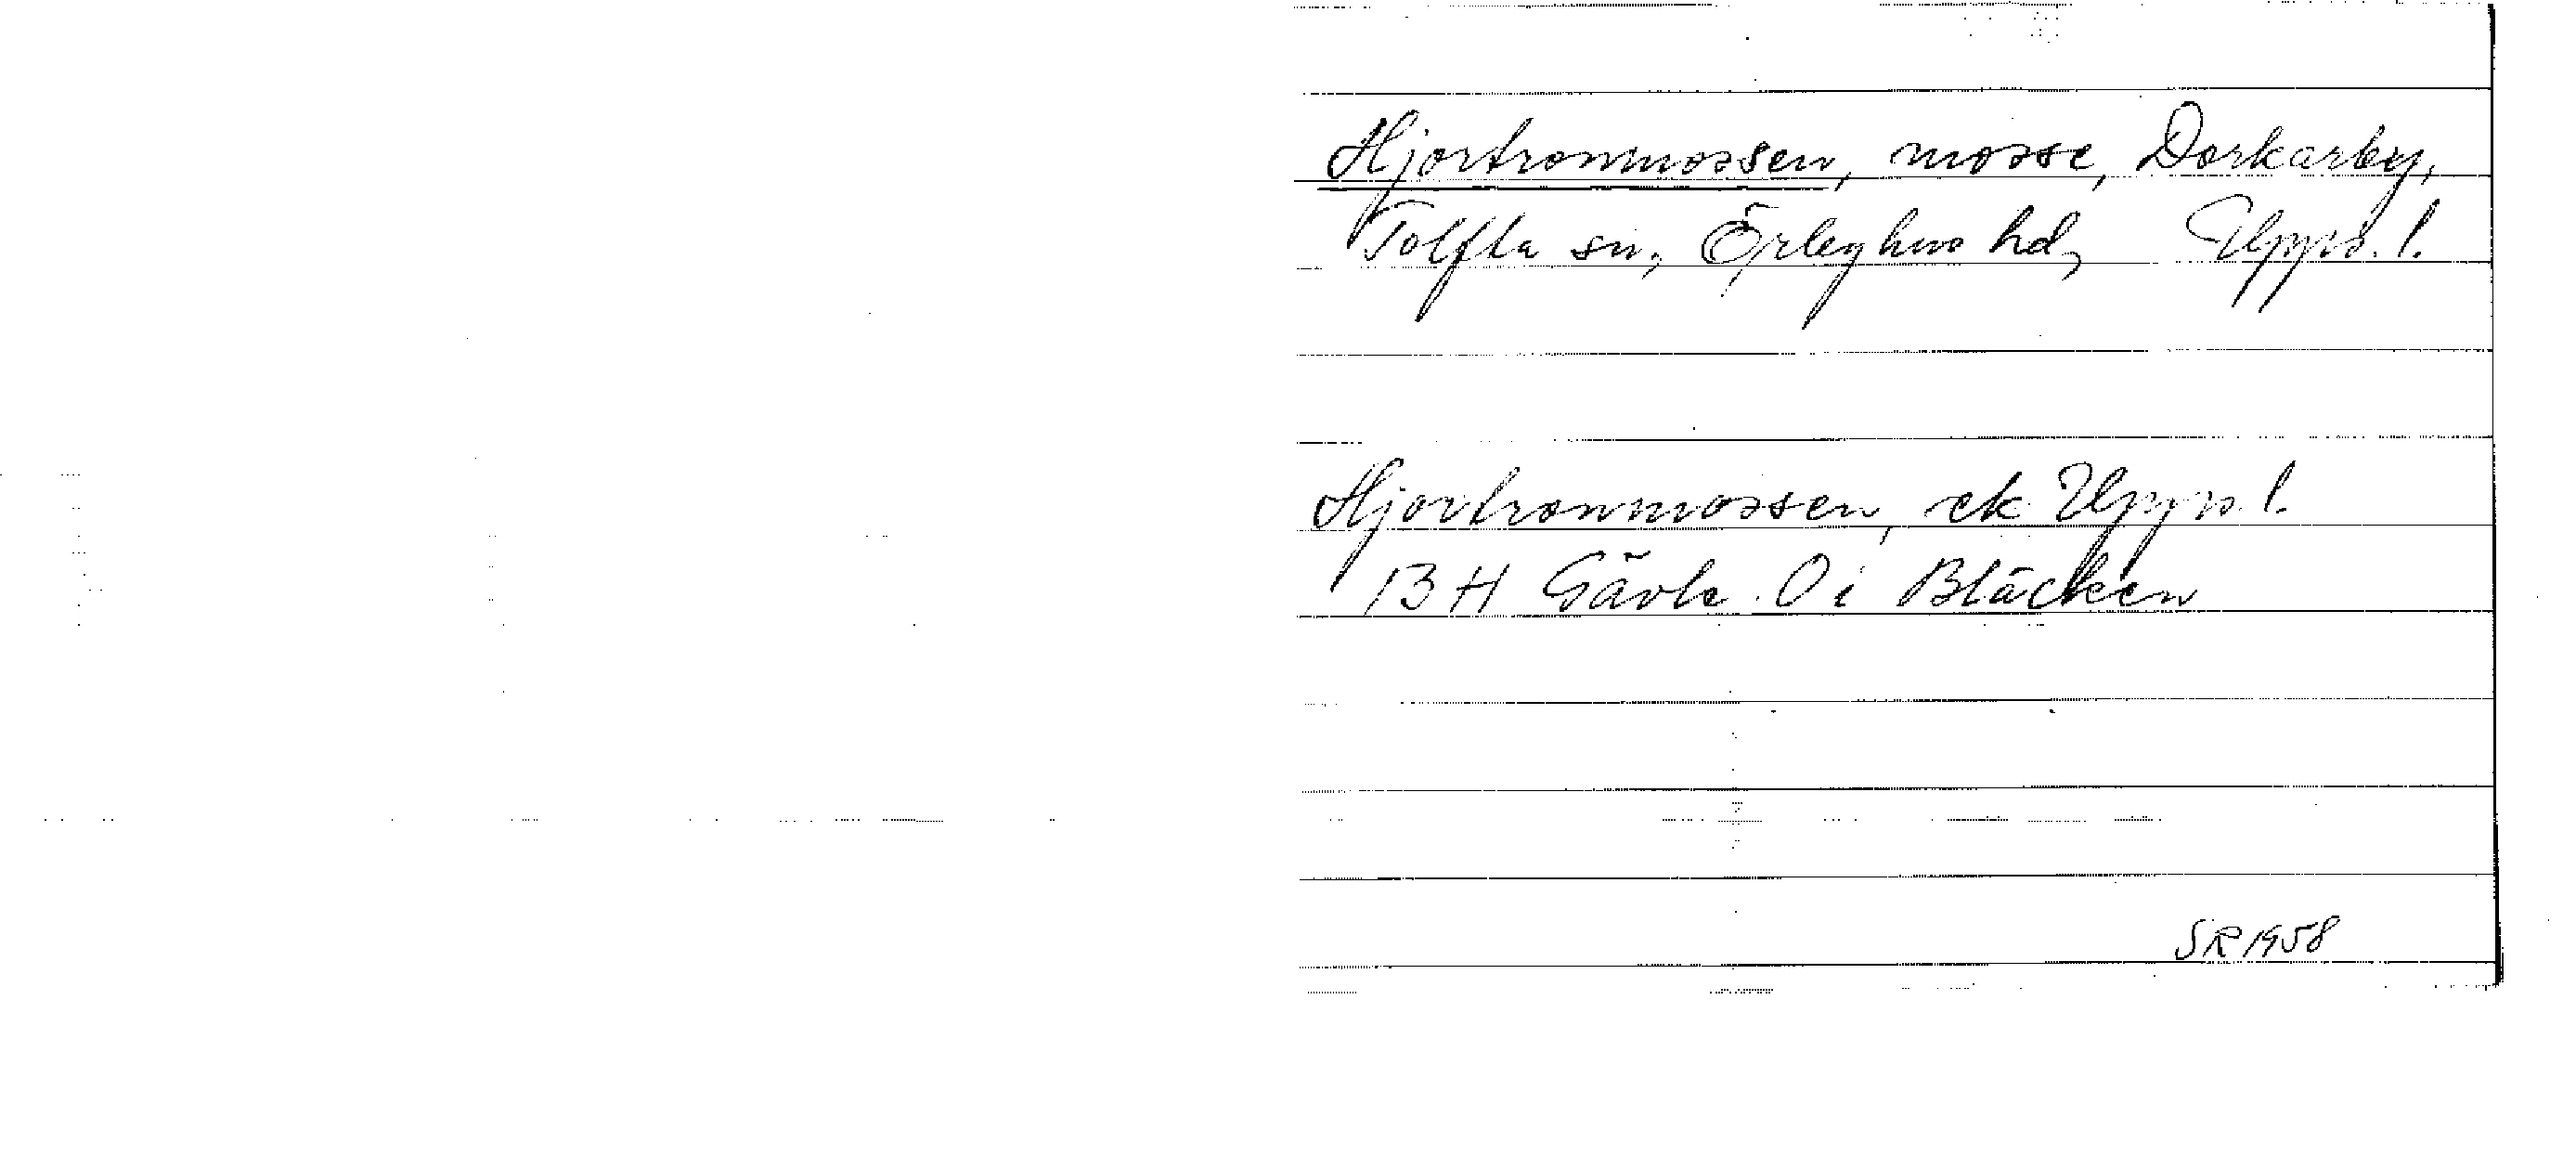 Hjortronmossen, mosse, Dorkarby,
Tolfta sn, Örbyhus hd, Upps. l.
Hjortronmossen, ek Upps. l.
13 H Gävle 0 i Bläcken
SR 1958